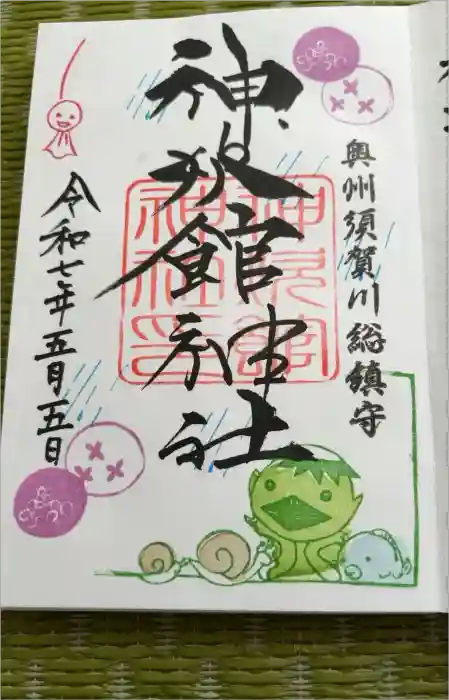 奥州須賀川総鎮守
神炊館神社
令和七年五月五日
神炊館
神社印